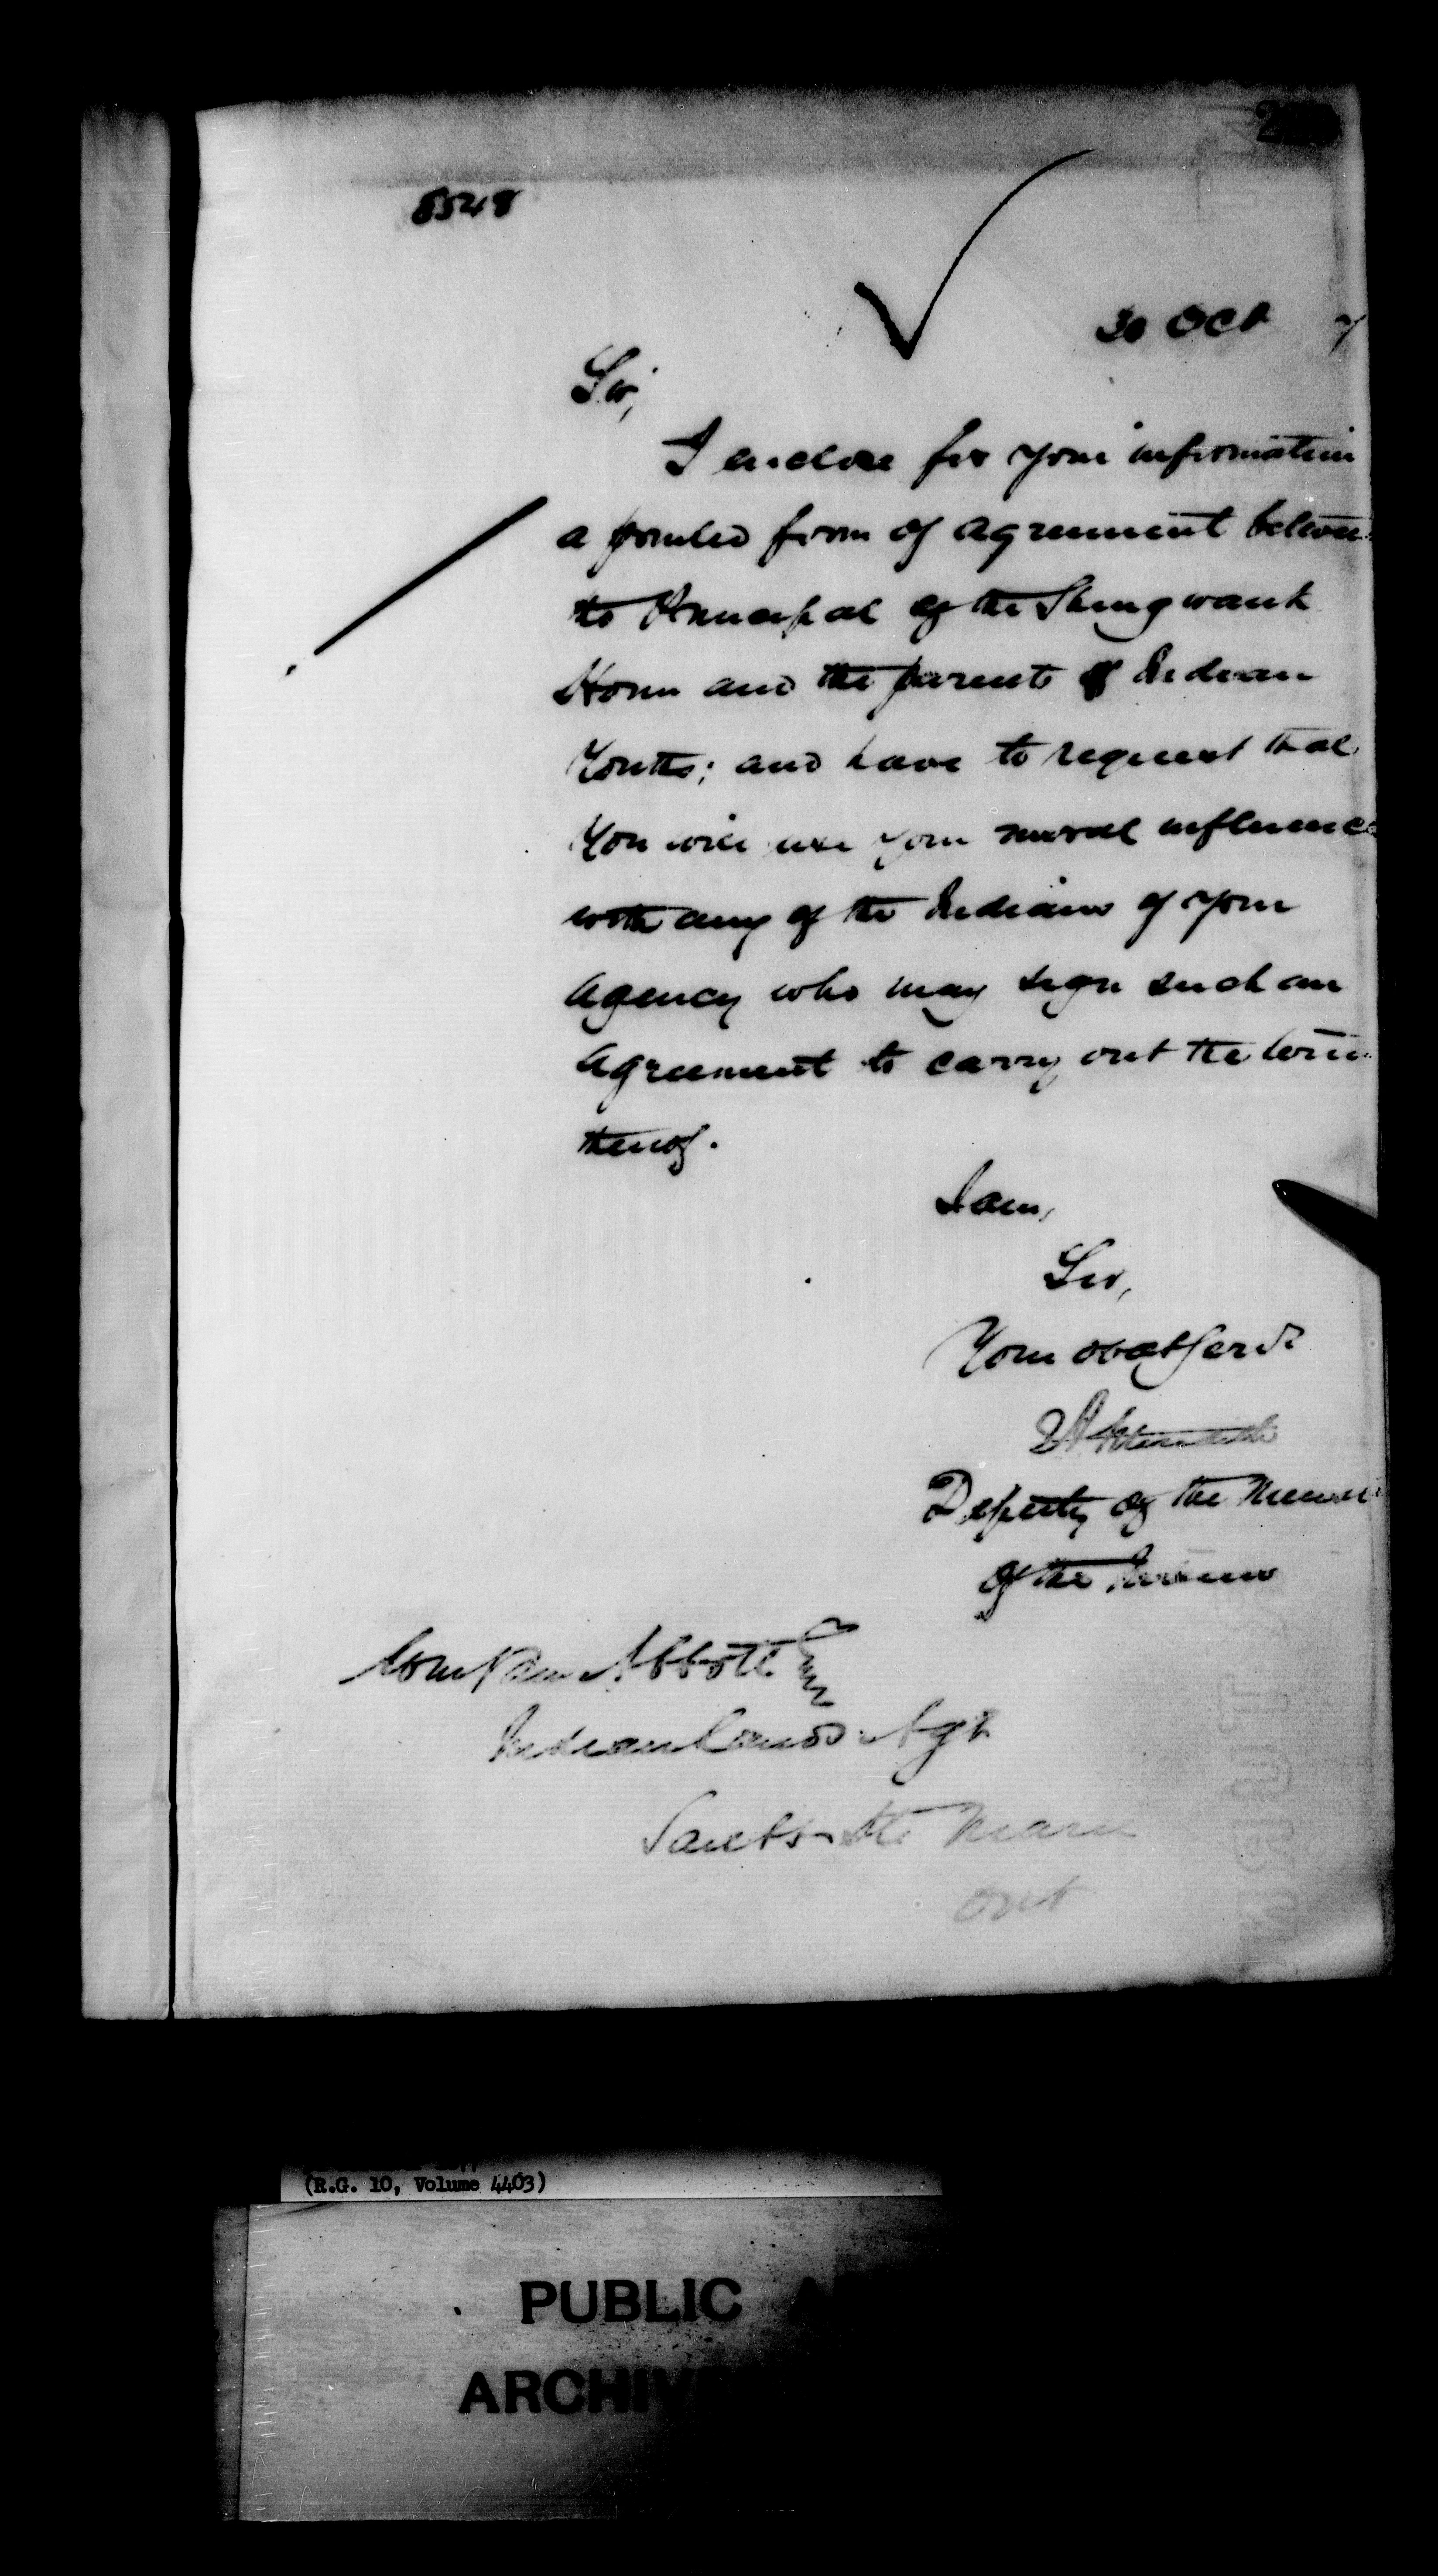 8548
30 Oct 7
Sir,
I enclose for your information
a printed form of agreement between
the Principal of the Shingwauk
Home and the parents of Indian
Youths; and have to request that
you will use your moral influence
with any of the Indians of your
agency who may sign such an
agreement to carry out the terms
thereof.
I am,
Sir,
Your obedt Servt
Deputy of the Minister
of the Interior
Wm Van Abbott Esq
Indian Lands Agt
Sault Ste Marie
Ont
(R.G. 10, Volume 4403)
PUBLIC A
ARCHIV